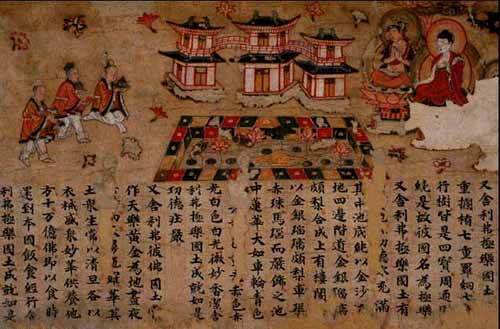 又舍利弗極樂國土
重攔楯七重羅網七
行樹皆是四寶周
繞是故彼國名為極樂
又舍利弗極樂國土有
充滿
其中池底純以金沙
地四邊階道金銀瑠璃
頗梨合成上有樓閣
以金銀瑠璃頗梨車璩
赤珠馬瑙而嚴飾之池
中蓮華大如車輪青色
赤色赤
光白色白光微妙香潔舍
利弗極樂國土成就如是
功德莊嚴
又舍利弗彼佛國土
作天樂黃金為地晝夜
華其
土眾生常以清旦各以
衣裓盛眾妙華供養他
方十万億佛即以食時
還到本國飯食經行舍
利弗極樂國土成就如是